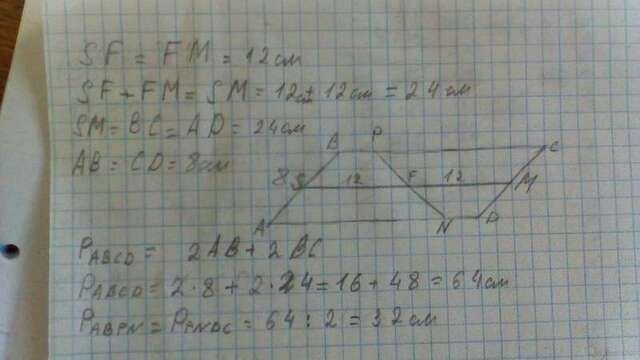 SF = FM = 12 см
SF + FM = SM = 12 см + 12 см = 24 см
SM = BC = AD = 24 см
AB = CD = 8 см
B P C
8 S 12 F 12 M
A N D
P_ABCD = 2AB + 2BC
P_ABCD = 2·8 + 2·24 = 16 + 48 = 64 см
P_ABPN = P_PNDC = 64 : 2 = 32 см